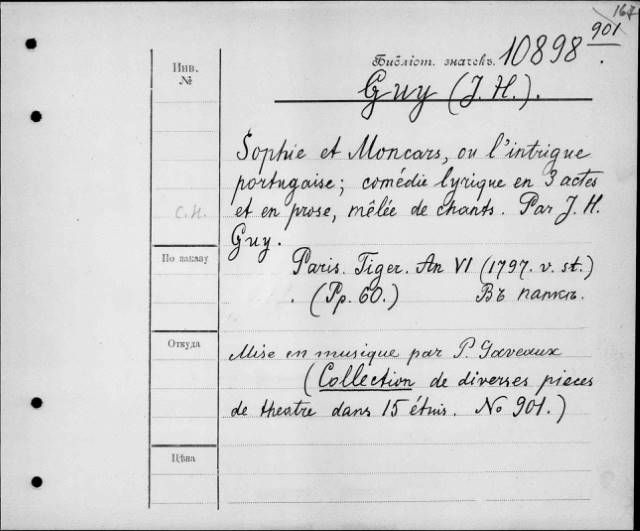 167
901
Инв.
№
Библіот. значекъ. 10898
Guy (J. H.).
Sophie et Moncars, ou l'intrigue
portugaise; comédie lyrique en 3 actes
С.Н.
et en prose, mêlée de chants. Par J. H.
Guy.
По заказу
Paris. Tiger. An VI (1797. v. st.)
(Pp. 60.) Въ папкѣ.
Откуда
Mise en musique par P. Gaveaux
(Collection de diverses pieces
de theatre dans 15 étuis. No 901.)
Цѣна